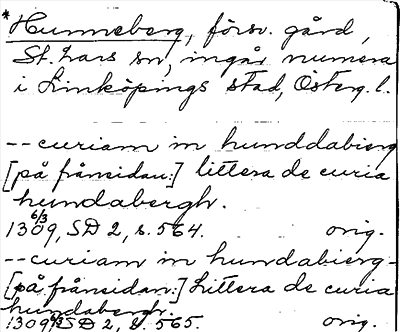 *Hunneberg, försv. gård,
St. Lars sn, ingår numera
i Linköpings stad, Österg. l.
-- curiam in hunddabierg
[på frånsidan:] littera de curia
hundabergh.
6/3 1309, SD 2, s. 564. orig.
-- curiam in hundabierg-
[på frånsidan:] Littera de curia
hundabergh.
1309 SD 2, s. 565. orig.